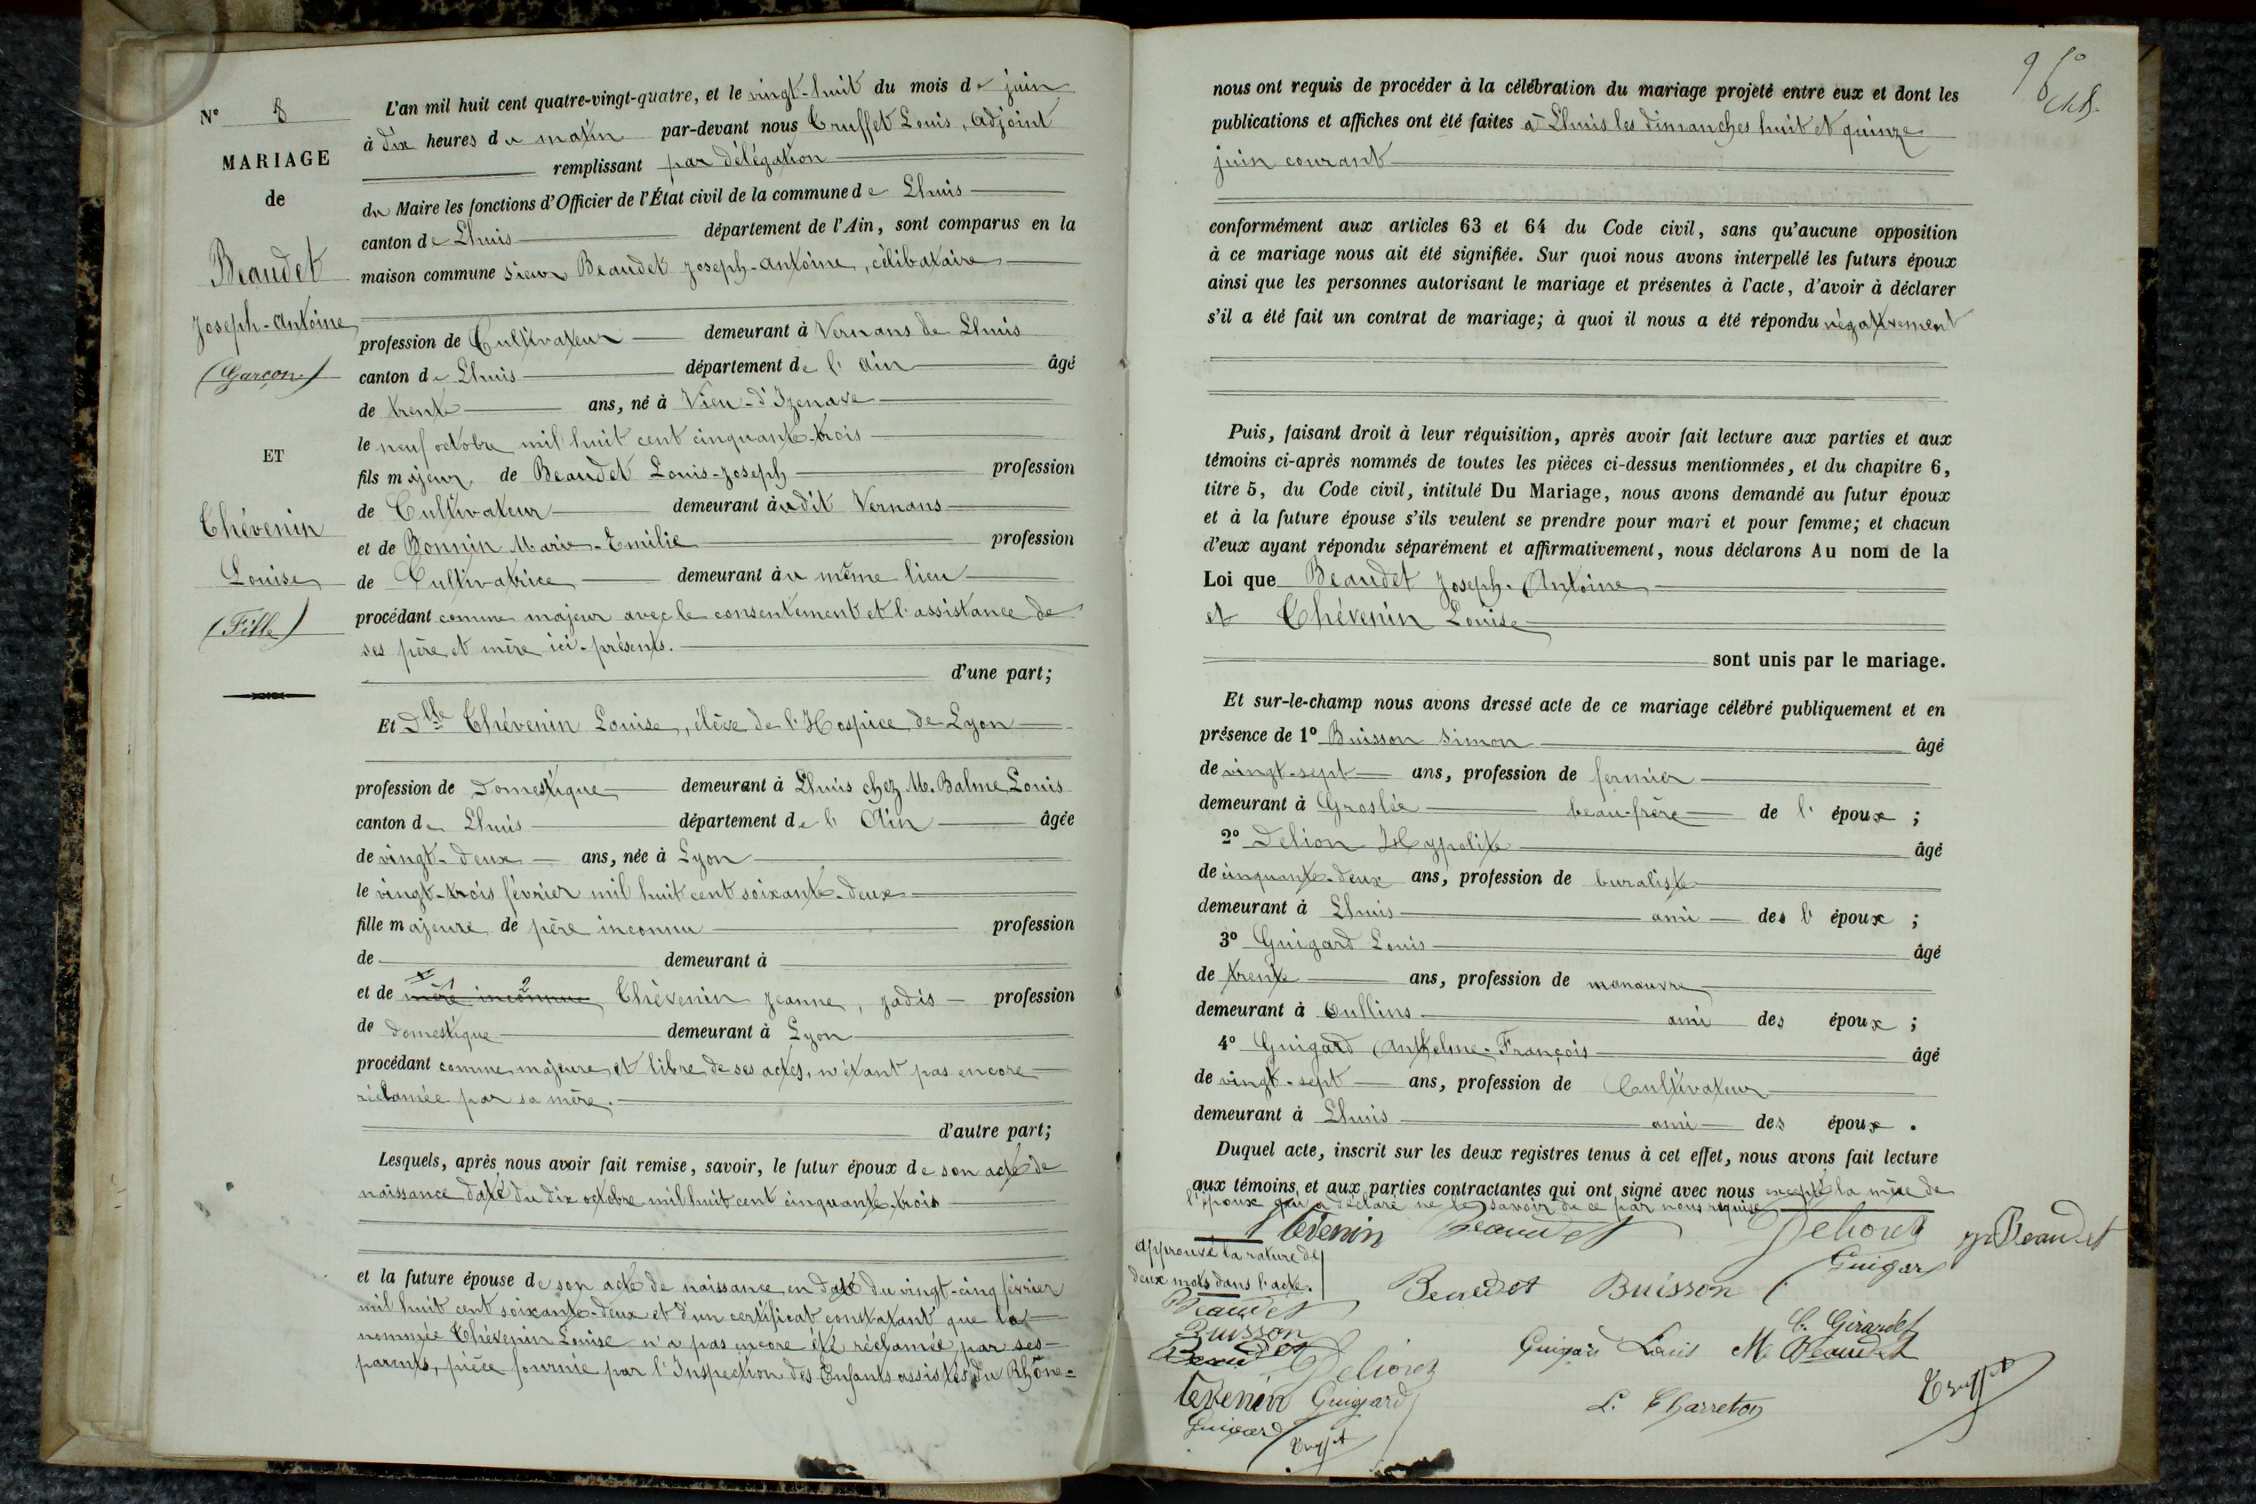 N° 8
MARIAGE
de
Beaudet
Joseph-Antoine
(Garçon)
ET
Thévenin
Louise
(Fille)
L'an mil huit cent quatre-vingt-quatre, et le vingt-huit du mois de juin
à dix heures du matin par-devant nous Truffet Louis, adjoint
remplissant par délégation
du Maire les fonctions d'Officier de l'État civil de la commune de Lhuis
canton de Lhuis département de l'Ain, sont comparus en la
maison commune sieur Beaudet Joseph-Antoine, célibataire
profession de Cultivateur demeurant à Vernans de Lhuis
canton de Lhuis département de l'Ain âgé
de trente ans, né à Vieu-d'Izenave
le neuf octobre mil huit cent cinquante-trois
fils majeur de Beaudet Louis-Joseph profession
de Cultivateur demeurant àudit Vernans
et de Bonnin Marie-Emilie profession
de Cultivatrice demeurant àu même lieu
procédant comme majeur avec le consentement et l'assistance de
ses père et mère ici-présents.
d'une part;
Et Dlle Thévenin Louise, élève de l'Hospice de Lyon
profession de Domestique demeurant à Lhuis chez M. Balme Louis
canton de Lhuis département de l'Ain âgée
de vingt-deux ans, née à Lyon
le vingt-trois février mil huit cent soixante-deux
fille majeure de père inconnu profession
de demeurant à
et de mère inconnue Thévenin Jeanne, jadis profession
de domestique demeurant à Lyon
procédant comme majeure et libre de ses actes, n'étant pas encore
réclamée par sa mère.
d'autre part;
Lesquels, après nous avoir fait remise, savoir, le futur époux de son acte de
naissance daté du dix octobre mil huit cent cinquante-trois
et la future épouse de son acte de naissance en date du vingt-cinq février
mil huit cent soixante-deux et d'un certificat constatant que la
nommée Thévenin Louise n'a pas encore été réclamée par ses
parents, pièce fournie par l'Inspection des Enfants assistés du Rhône=
nous ont requis de procéder à la célébration du mariage projeté entre eux et dont les
publications et affiches ont été faites à Lhuis les dimanches huit et quinze
juin courant
conformément aux articles 63 et 64 du Code civil, sans qu'aucune opposition
à ce mariage nous ait été signifiée. Sur quoi nous avons interpellé les futurs époux
ainsi que les personnes autorisant le mariage et présentes à l'acte, d'avoir à déclarer
s'il a été fait un contrat de mariage; à quoi il nous a été répondu négativement
Puis, faisant droit à leur réquisition, après avoir fait lecture aux parties et aux
témoins ci-après nommés de toutes les pièces ci-dessus mentionnées, et du chapitre 6,
titre 5, du Code civil, intitulé Du Mariage, nous avons demandé au futur époux
et à la future épouse s'ils veulent se prendre pour mari et pour femme; et chacun
d'eux ayant répondu séparément et affirmativement, nous déclarons Au nom de la
Loi que Beaudet Joseph-Antoine
et Thévenin Louise
sont unis par le mariage.
Et sur-le-champ nous avons dressé acte de ce mariage célébré publiquement et en
présence de 1° Buisson Simon âgé
de vingt-sept ans, profession de fermier
demeurant à Groslée beau-frère de l'époux ;
2° Delion Hypolite âgé
de cinquante-deux ans, profession de buraliste
demeurant à Lhuis ami des l'époux ;
3° Guigard Louis âgé
de trente ans, profession de manœuvre
demeurant à Oullins ami des époux ;
4° Guigard Anthelme-François âgé
de vingt-sept ans, profession de Cultivateur
demeurant à Lhuis ami des époux .
Duquel acte, inscrit sur les deux registres tenus à cet effet, nous avons fait lecture
aux témoins, et aux parties contractantes qui ont signé avec nous excepté la mère de
l'époux qui a déclaré ne le savoir de ce par nous requise
Tévenin Beaudet Beaudet
Guigard
Approuvé la rature de
deux mots dans l'acte.
Beaudet Buisson
Beaudet
Buisson
Beaudet
C. Girardet
Guigard Louis M Beaudet
Tévenin Guigard
L. Charreton
Truffet
Guigard
Truffet